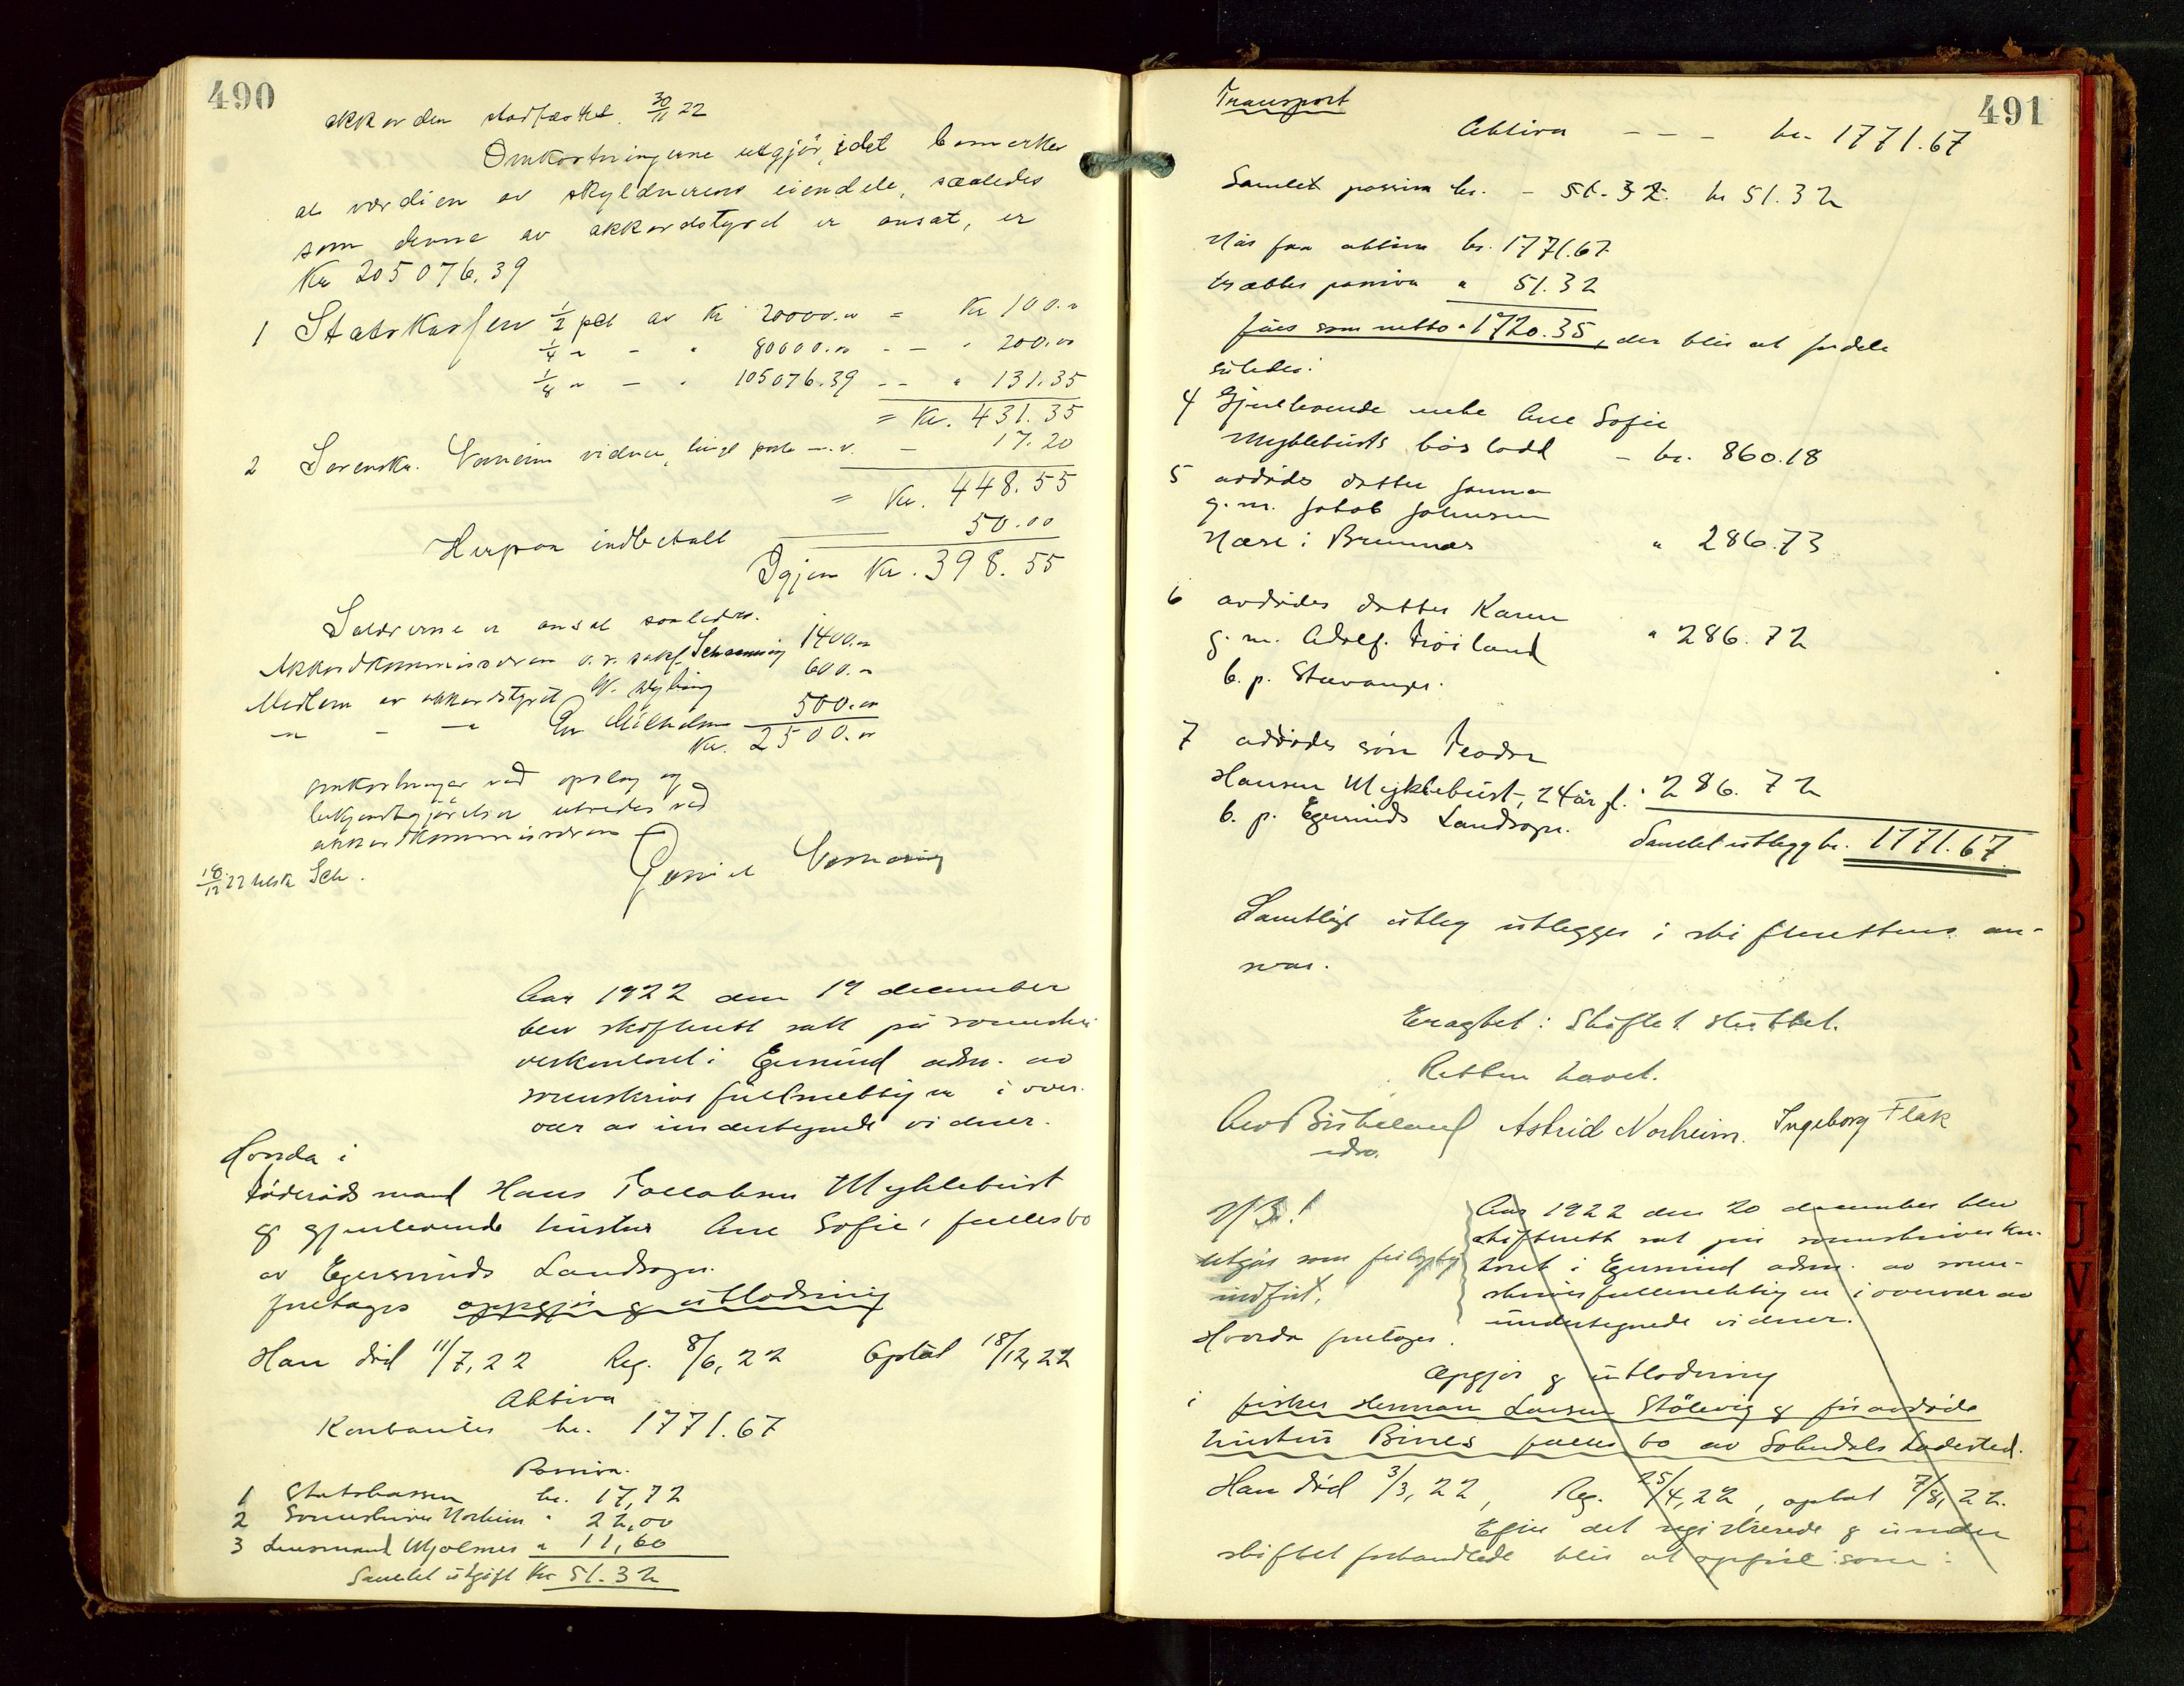 490
akkorden stadfæstet. 30/11 22
Omkostningerne utgjör, idet bemerkes
at værdien av skyldnerens eiendele, saaledes
som denne av akkordstyret er ansat, er
Kr 205076,39
1 Statskassen 1/2 pct av Kr 20000.00 = Kr 100.00
1/4 " - " 80000.00 - - " 200.00
1/8 " - " 105076.39 - - " 131.35
= Kr. 431.35
2 Sorenskr. vidner, tingl porto m.v. - 17.20
= Kr. 448.55
Herpaa indbetalt 50.00
Igjen Kr. 398.55
Salærerne er ansat saaledes.
Akkordkommissæren o.r.sakf. Schanning 1400.00
Medlem av akkordstyret W. 600.00
" - " 500.00
Kr. 2500.00
omkostninger ved opslag og
bekjendtgjörelser utredes ved
akkordkommissæren
18/12 22 Sch.
Aar 1922 den 19 december
blev skifterett satt på sorenskri
verkontoret i Egersund adm. av
sorenskriverfullmektigen i over
vær av undertegnede vidner.
Hvorda i
föderådsmand Hans Tollaksen Myklebust
og gjenlevende hustru Ane Sofie's fellesbo
av Egersunds Landsogn.
foretages oppgjör og utlodning
Han död 11/7, 22 Reg. 8/6, 22 Optat 18/12, 22
Aktiva
Kontanter kr. 1771.67
Passiva.
1 Statskassen kr. 17,72
2 Sorenskriver Norheim " 22,00
3 Lensmand Mjølsnes " 11,60
Samlet utgift Kr 51.32
491
Transport
Aktiva - - - kr. 1771.67
Samlet passiva kr. - 51.32. kr 51.32
Når fra aktiva kr. 1771.67
trækkes passiva " 51.32
fåes som netto " 1720.35, der blir at fordele
således:
4 Gjenlevende enke Ane Sofie
Myklebusts boslodd - kr. 860.18
5 avdødes datter Janna
g.m. Jakob Johnsen
Næse i Bremnes " 286.73
6 avdødes datter Karen
g.m. Adolf Tröiland " 286.72
b. p. Stavanger.
7 avdødes sön Teodor
Hansen Myklebust, 24 år gl. " 286.72
b. p. Egersunds Landsogn.
Samlet utlegg kr. 1771.67
Samtlige utleg utlegges i skifterettens an-
svar.
Eragtet: Skiftet sluttet.
Retten hævet.
Astrid Norheim. Ingeborg Flak
edsv.
NB!
utgår som feilagtig
indført.
Hvorda foretages
Aar 1922 den 20 december blev
skifterett sat på sorenskriverkon-
toret i Egersund adm. av soren-
skriverfullmektigen i overvær av
undertegnede vidner.
Opgjör og utlodning
i fisker Herman Larsen Stölevig og før avdøde
hustru Bines felles bo av Sokndals Ladested.
Han död 3/3, 22, Reg. 25/4, 22, optat 7/8, 22.
Efter det registrerede og under
skiftet forhandlede blir at opføre som: